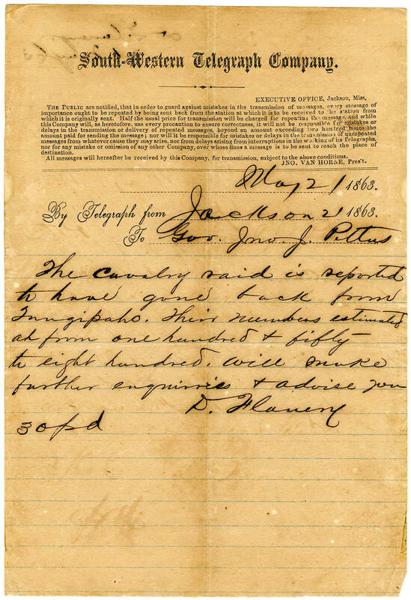 South-Western Telegraph Company.
EXECUTIVE OFFICE, Jackson, Miss,
THE PUBLIC are notified, that in order to guard against mistakes in the transmission of messages, every message of
importance ought to be repeated by being sent back from the station at which it is to be received to the station from
which it is originally sent. Half the usual price for transmission will be charged for repeating the message, and while
this Company will, as heretofore, use every precaution to ensure correctness, it will not be responsible for mistakes or
delays in the transmission or delivery of repeated messages, beyond an amount exceeding two hundred times the
amount paid for sending the message; nor will it be responsible for mistakes or delays in the transmission of unrepeated
messages from whatever cause they may arise, nor for delays arising from interruptions in the working of its Telegraphs,
nor for any mistake or omission of any other Company, over whose lines a message is to be sent to reach the place of
destination.
All messages will hereafter be received by this Company, for transmission, subject to the above conditions.
JNO. VAN HORNE, Pres't.
May 21 1863.
By Telegraph from Jackson 21 1863.
To Gov. Jno. J. Pettus
The cavalry raid is reported
to have gone back from
Tangipaho. Their numbers estimated
ad from one hundred & fifty
to eight hundred. will make
further enquiries & advise you
D. Flanery
30 pd